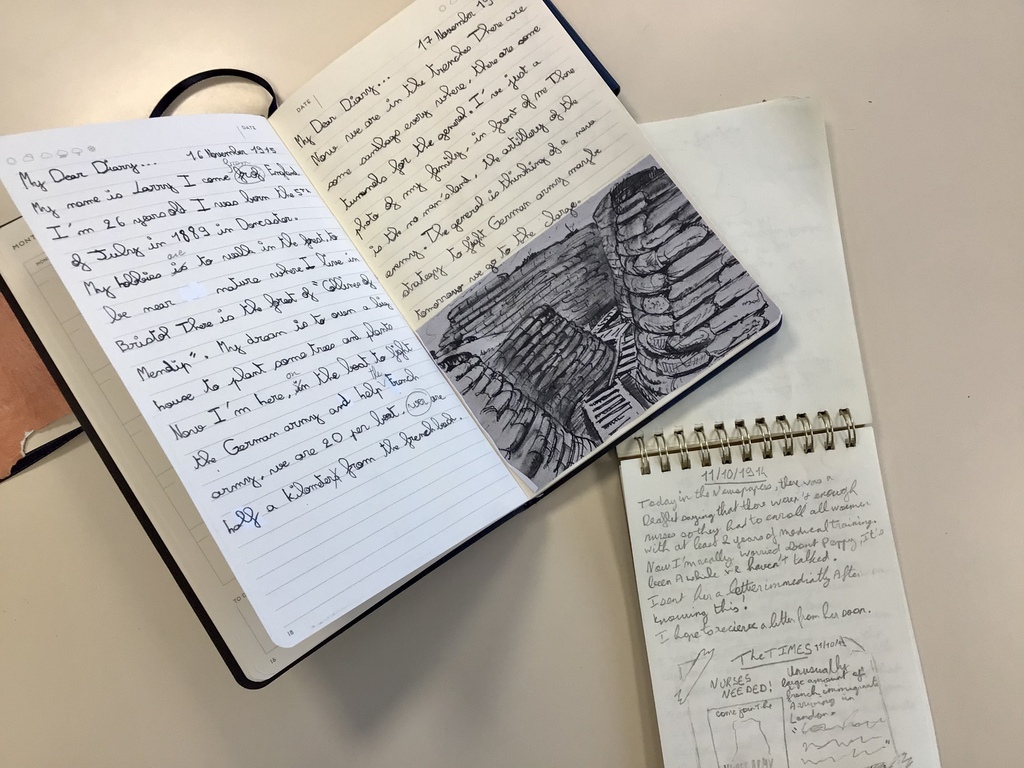 DATE
My Dear Diary...
16 November 1915
My name is Larry I come from England
I'm 26 years old I was born the 5th
of July in 1889 in Doncaster.
My hobbies are to walk in the forest, to
be near nature where I live in
Bristol There is the forest of "Collines of
Mendip". My dream is to own a big
house to plant some trees and plants
Now I'm here, on the boat to fight
the German army and help the French
army. we are 20 per boat, we are
half a kilometer from the french boat.
18
DATE
17 November 19
My Dear Diary...
Now we are in the trenches There are
some sandbags every where, there are some
tunnels for the general. I've just a
photo of my family, in front of me There
is the no man's land, the artillery of the
enemy. The general is thinking of a new
strategy to fight German army maybe
tomorrow we go to the large.
MONT
16
11/10/1914
Today in the Newspapers, there was a
leaflet saying that there wasn't enough
nurses so they had to enroll all women
with at least 2 years of medical training.
Now I'm really worried about Poppy, It's
been A while we haven't talked.
I sent her a letter immediatly After
knowing this!
I hope to recieve a letter from her soon.
The TIMES 11/10/14
NURSES
NEEDED!
come join the
Unusually
large amount of
french immigrants
Arriving in
London.